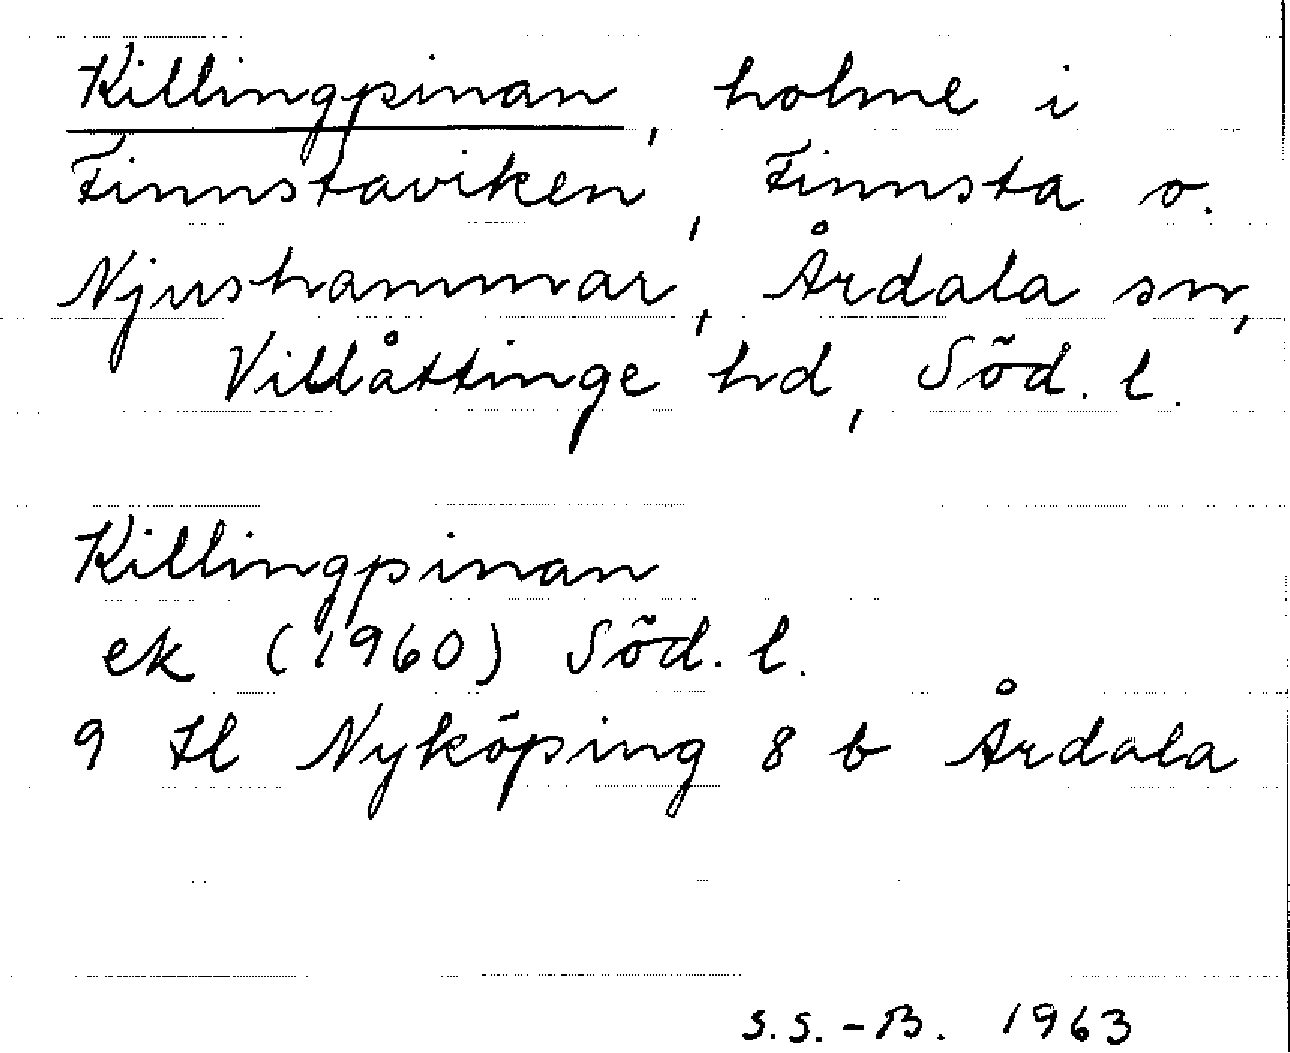 Killingpinan, holme i
Finnstaviken, Finnsta o.
Njushammar, Årdala sn,
Villåttinge hd, Söd. l.
Killingpinan
ek (1960) Söd. l.
9 H Nyköping 8 b Årdala
S.S.-B. 1963